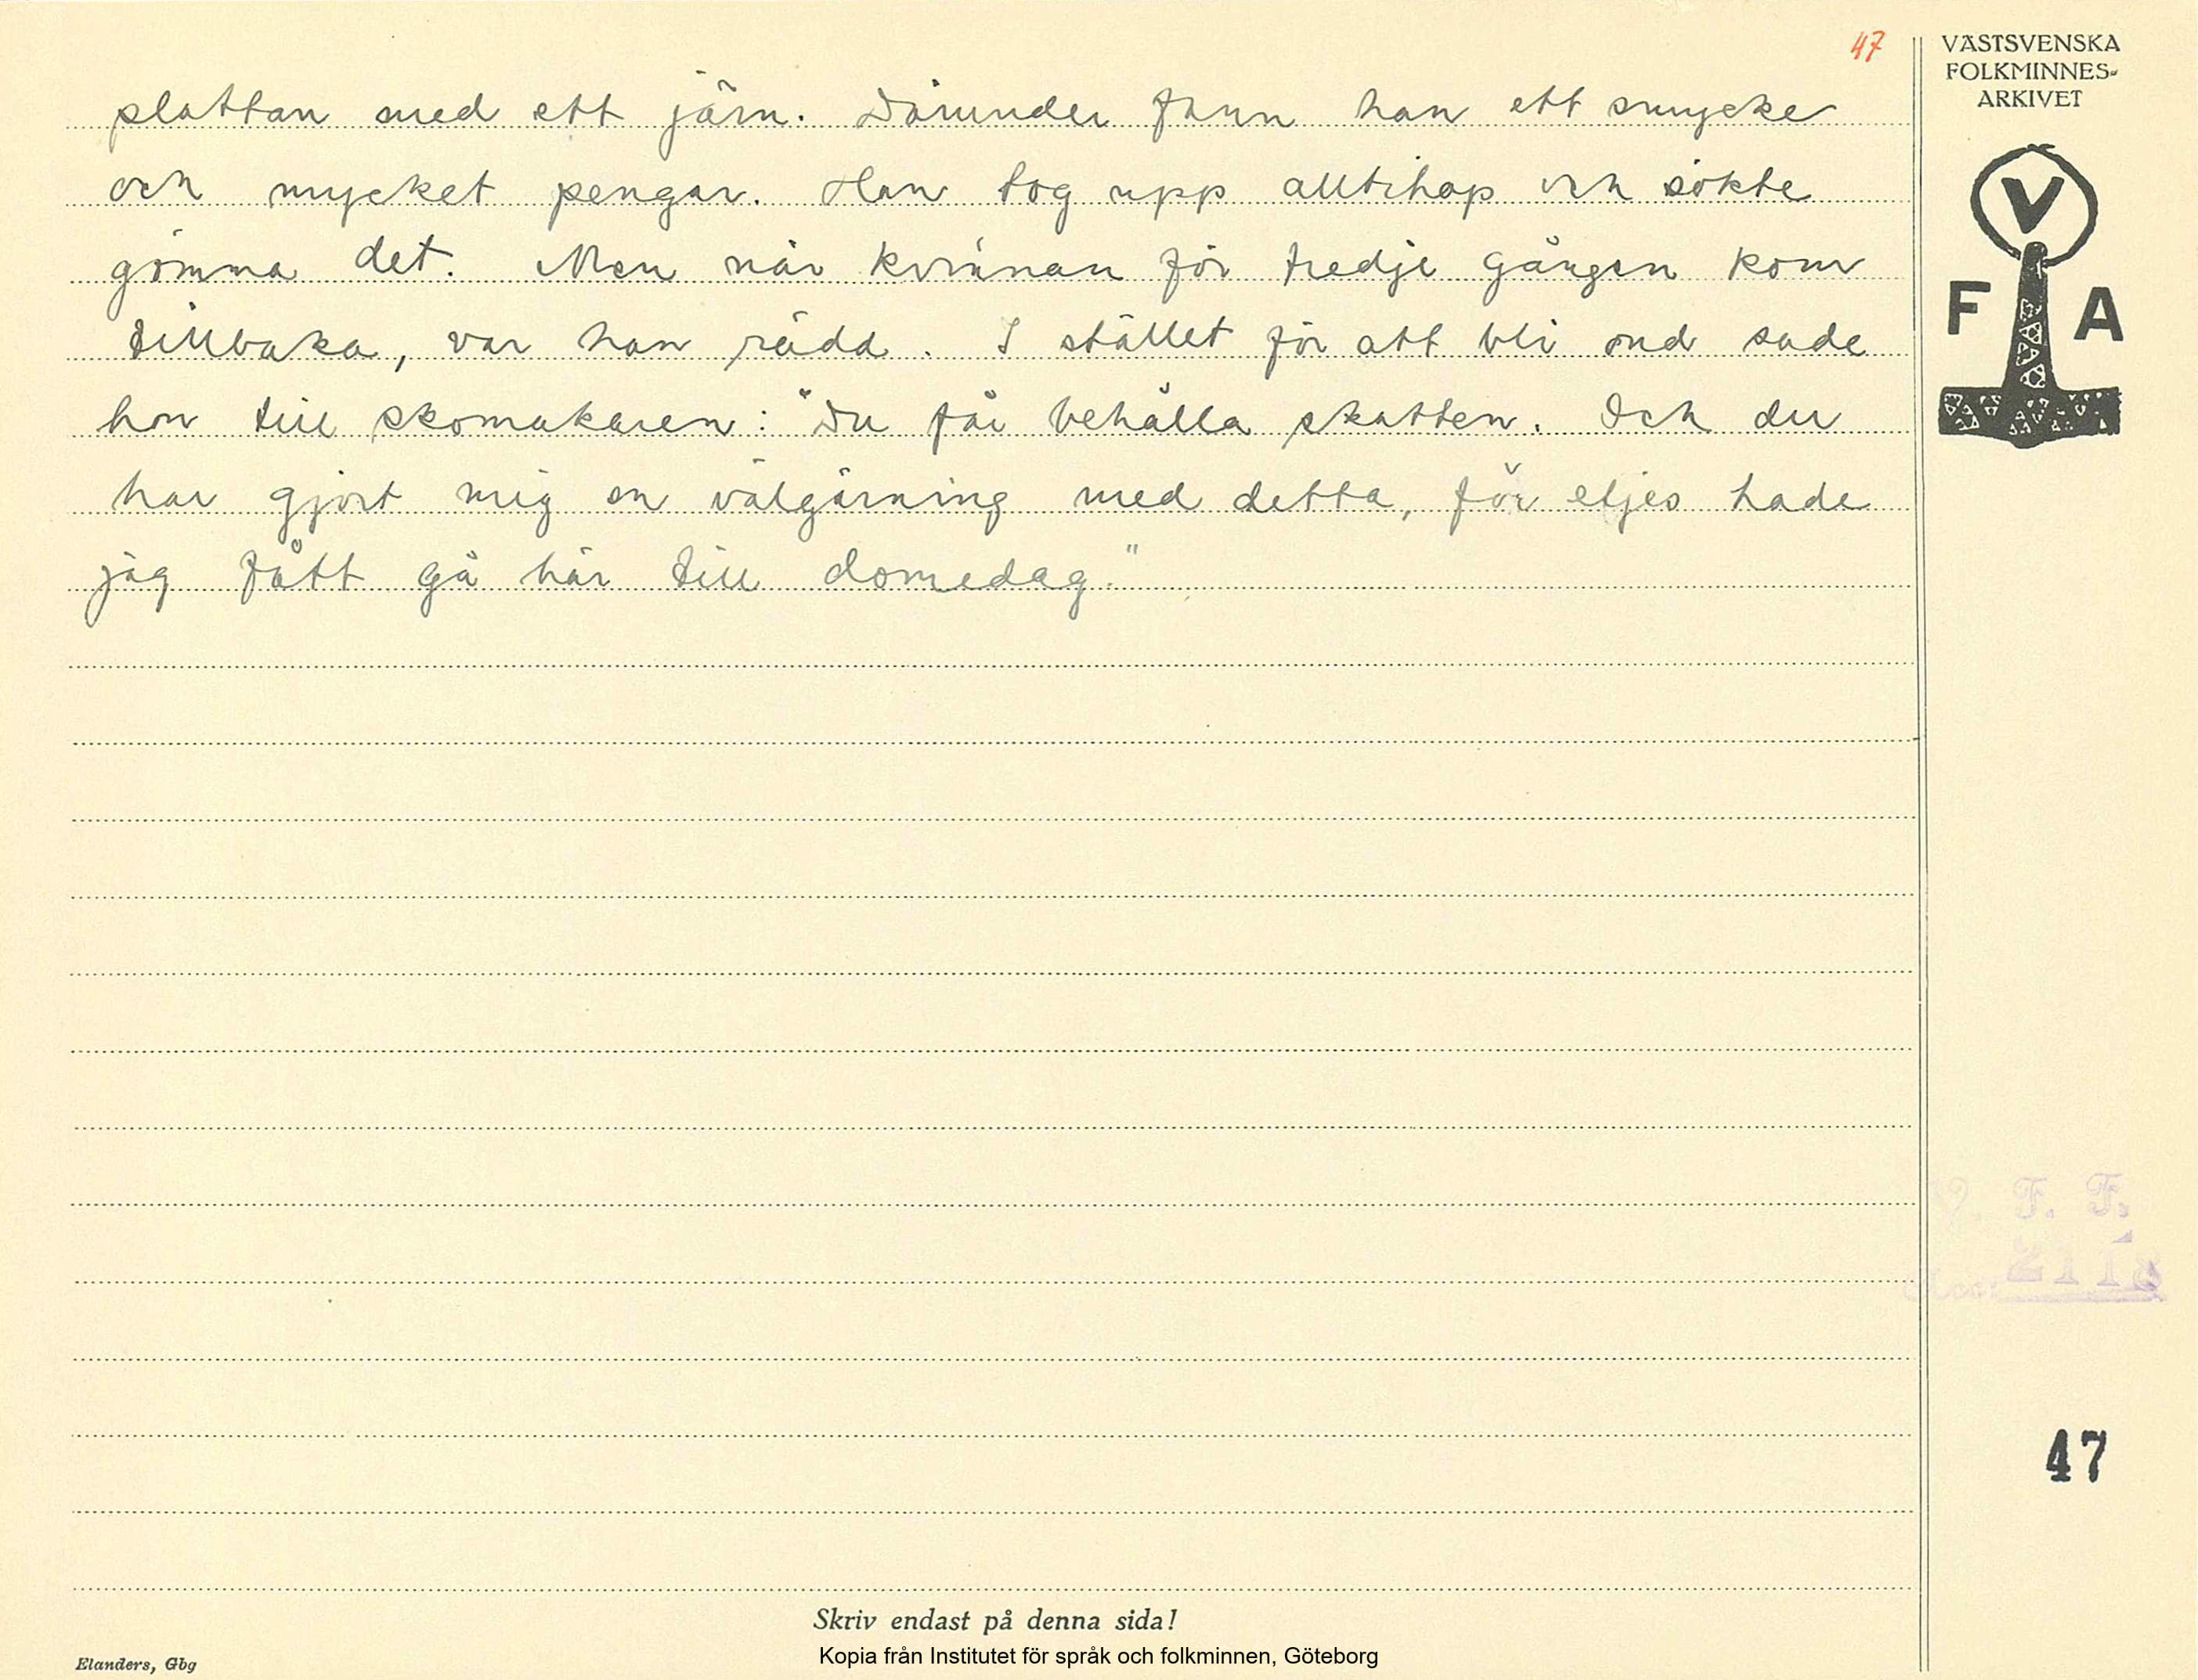 47
VÄSTSVENSKA
FOLKMINNES-
ARKIVET
V
F A
plattan med ett järn. Därunder fann han ett smycke
och mycket pengar. Han tog upp alltihop och sökte
gömma det. Men när kvinnan för tredje gången kom
tillbaka, var han rädd. I stället för att bli ond sade
hon till skomakaren: "Du får behålla skatten. Och du
har gjort mig en välgärning med detta, för eljes hade
jag fått gå här till domedag."
V. F. F.
47
Skriv endast på denna sida!
Kopia från Institutet för språk och folkminnen, Göteborg
Elanders, Gbg